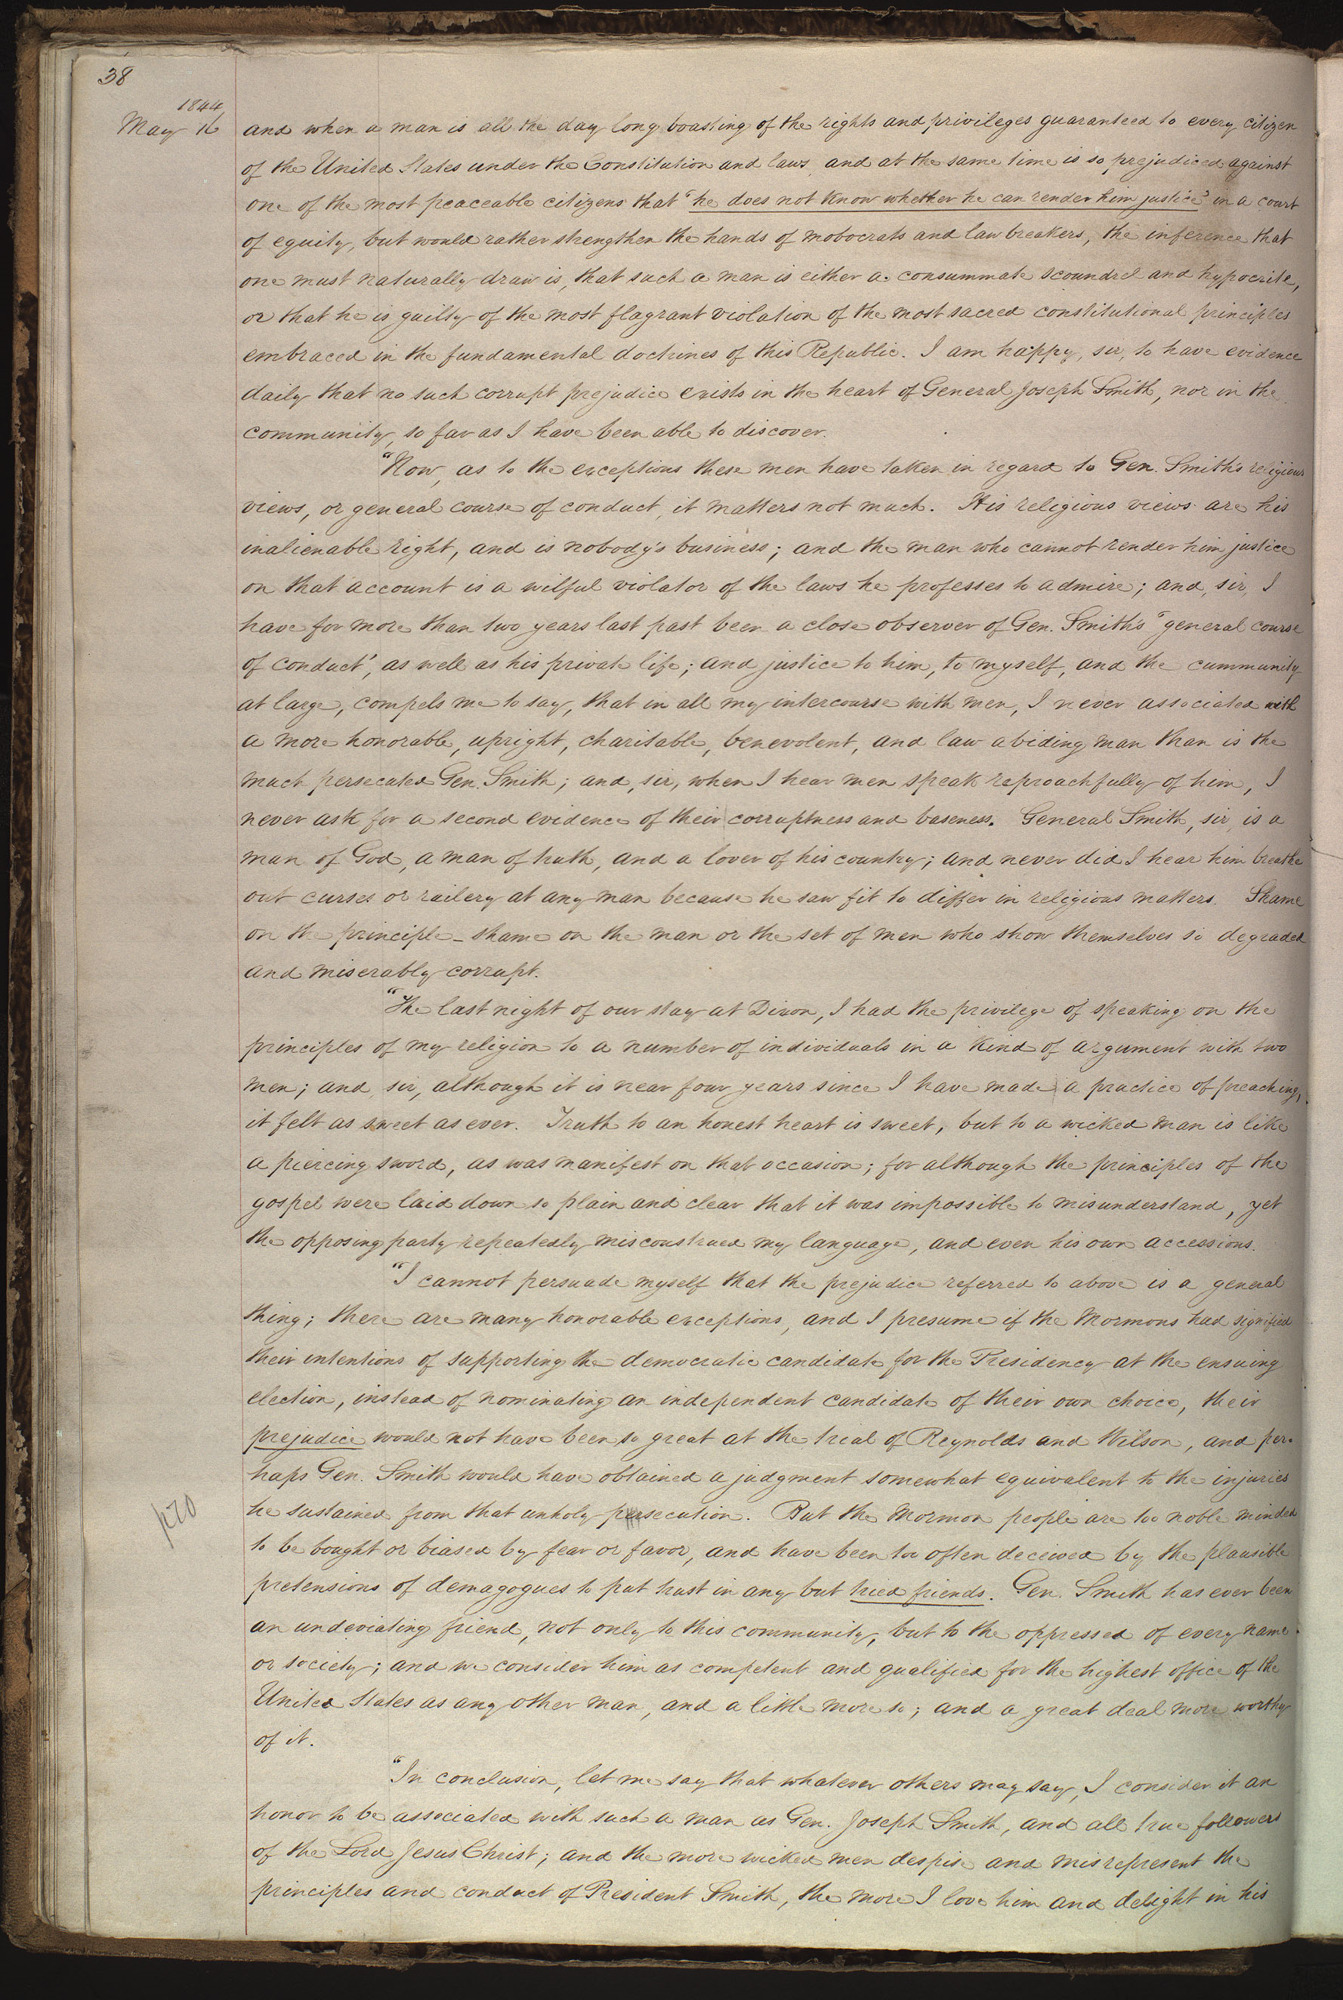 38
1844
May 16
and when a man is all the day long boasting of the rights and privileges guaranteed to every citizen
of the United States under the Constitution and laws, and at the same time is so prejudiced against
one of the most peaceable citizens that "he does not know whether he can render him justice" in a court
of equity, but would rather strengthen the hands of mobocrats and law breakers, the inference that
one must naturally draw is, that such a man is either a consummate scoundrel and hypocrite,
or that he is guilty of the most flagrant violation of the most sacred constitutional principles
embraced in the fundamental doctrines of this Republic. I am happy, sir, to have evidence
daily that no such corrupt prejudice exists in the heart of General Joseph Smith, nor in the
community, so far as I have been able to discover.
"Now, as to the exceptions these men have taken in regard to Gen. Smith's religious
views, or general course of conduct, it matters not much. His religious views are his
inalienable right, and is nobody's business; and the man who cannot render him justice
on that account is a wilful violator of the laws he professes to admire; and, sir, I
have for more than two years last past been a close observer of Gen. Smith's "general course
of conduct", as well as his private life; and justice to him, to myself, and the cummunity
at large, compels me to say, that in all my intercourse with men, I never associated with
a more honorable, upright, charitable, benevolent, and law abiding man than is the
much persecuted Gen. Smith; and, sir, when I hear men speak reproachfully of him, I
never ask for a second evidence of their corruptness and baseness. General Smith, sir, is a
man of God, a man of truth, and a lover of his country; and never did I hear him breathe
out curses or railery at any man because he saw fit to differ in religious matters. Shame
on the principle - shame on the man or the set of men who show themselves so degraded
and miserably corrupt.
"The last night of our stay at Dixon, I had the privilege of speaking on the
principles of my religion to a number of individuals in a kind of argument with two
men; and, sir, although it is near four years since I have made a practice of preaching,
it felt as sweet as ever. Truth to an honest heart is sweet, but to a wicked man is like
a piercing sword, as was manifest on that occasion; for although the principles of the
gospel were laid down so plain and clear that it was impossible to misunderstand, yet
the opposing party repeatedly misconstrued my language, and even his own accessions.
"I cannot persuade myself that the prejudice referred to above is a general
thing; there are many honorable exceptions, and I presume if the Mormons had signified
their intentions of supporting the democratic candidate for the Presidency at the ensuing
election, instead of nominating an independent candidate of their own choice, their
prejudice would not have been so great at the trial of Reynolds and Wilson, and per-
haps Gen. Smith would have obtained a judgment somewhat equivalent to the injuries
he sustained from that unholy persecution. But the Mormon people are too noble minded
to be bought or biased by fear or favor, and have been too often deceived by the plausible
pretensions of demagogues to put trust in any but tried friends. Gen. Smith has ever been
an undeviating friend, not only to this community, but to the oppressed of every name
or society; and we consider him as competent and qualified for the highest office of the
United States as any other man, and a little more so; and a great deal more worthy
of it.
"In conclusion, let me say that whatever others may say, I consider it an
honor to be associated with such a man as Gen. Joseph Smith, and all true followers
of the Lord Jesus Christ; and the more wicked men despise and misrepresent the
principles and conduct of President Smith, the more I love him and delight in his